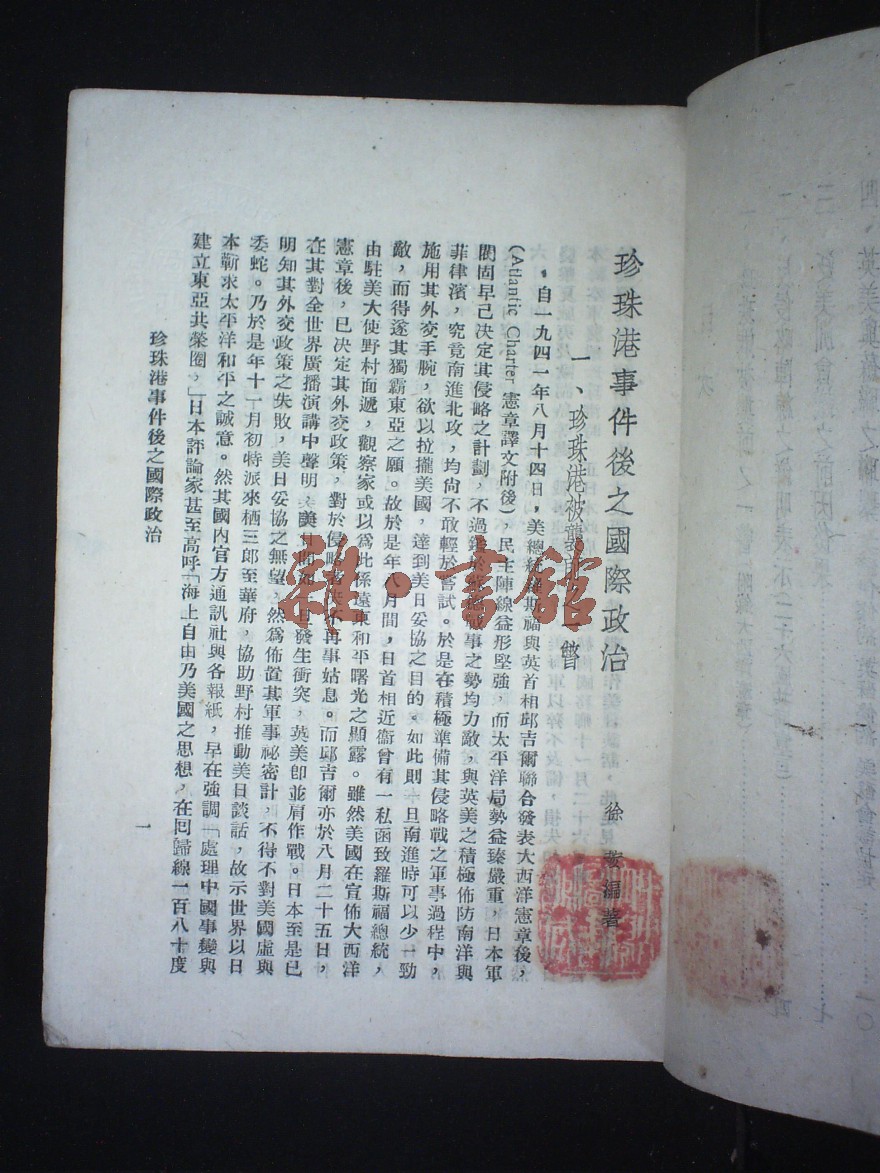 珍珠港事件後之國際政治
徐 編著
一、珍珠港被襲 一瞥
自一九四一年八月十四日,美總統羅斯福與英首相邱吉爾聯合發表大西洋憲章後,
(Atlantic Charter 憲章譯文附後),民主陣線益形堅強,而太平洋局勢益臻嚴重,日本軍
閥固早已決定其侵略之計劃,不過 戰事之勢均力敵,與英美之積極佈防南洋與
菲律濱,究竟南進北攻,均尚不敢輕於嘗試。於是在積極準備其侵略戰之軍事過程中,
施用其外交手腕,欲以拉攏美國,達到美日妥協之目的。如此則一旦南進時可以少一勁
敵,而得遂其獨霸東亞之願。故於是年八月間,日首相近衞曾有一私函致羅斯福總統,
由駐美大使野村面遞,觀察家或以爲此係遠東和平曙光之顯露。雖然美國在宣佈大西洋
憲章後,已決定其外交政策,對於侵略者 不再事姑息。而邱吉爾亦於八月二十五日,
在其對全世界廣播演講中聲明, 發生衝突,英美卽並肩作戰。日本至是已
明知其外交政策之失敗,美日妥協之無望,然爲佈置其軍事祕密計,不得不對美國虛與
委蛇。乃於是年十一月初特派來栖三郎至華府,協助野村推動美日談話,故示世界以日
本蘄求太平洋和平之誠意。然其國內官方通訊社與各報紙,早在強調「處理中國事變與
建立東亞共榮圈,」日本評論家甚至高呼「海上自由乃美國之思想,在回歸線一百八十度
珍珠港事件後之國際政治
一
雜·書館